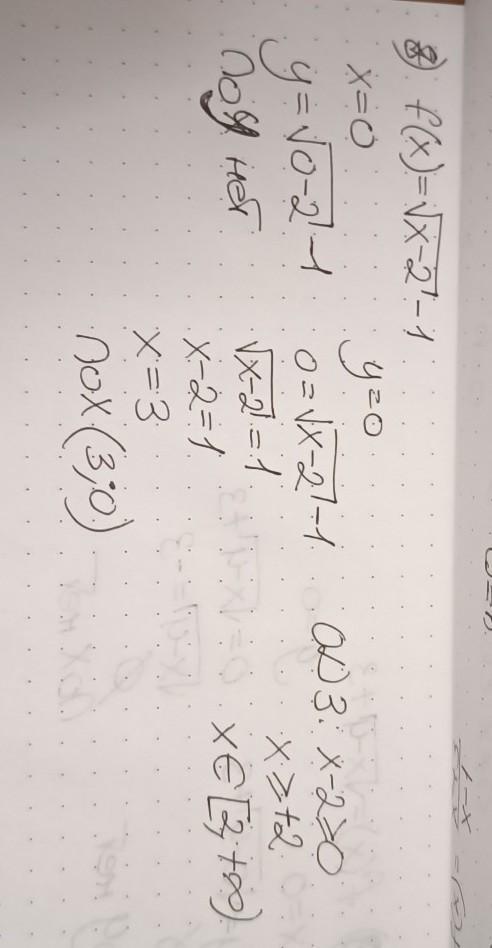 8) f(x)=√x-2-1
x=0
y=√0-2-1
ПоУ нет
y=0
0=√x-2-1
√x-2=1
x-2=1
x=3
ПоX (3;0)
ОДЗ: x-2≥0
x≥+2
x∈[2,+∞)